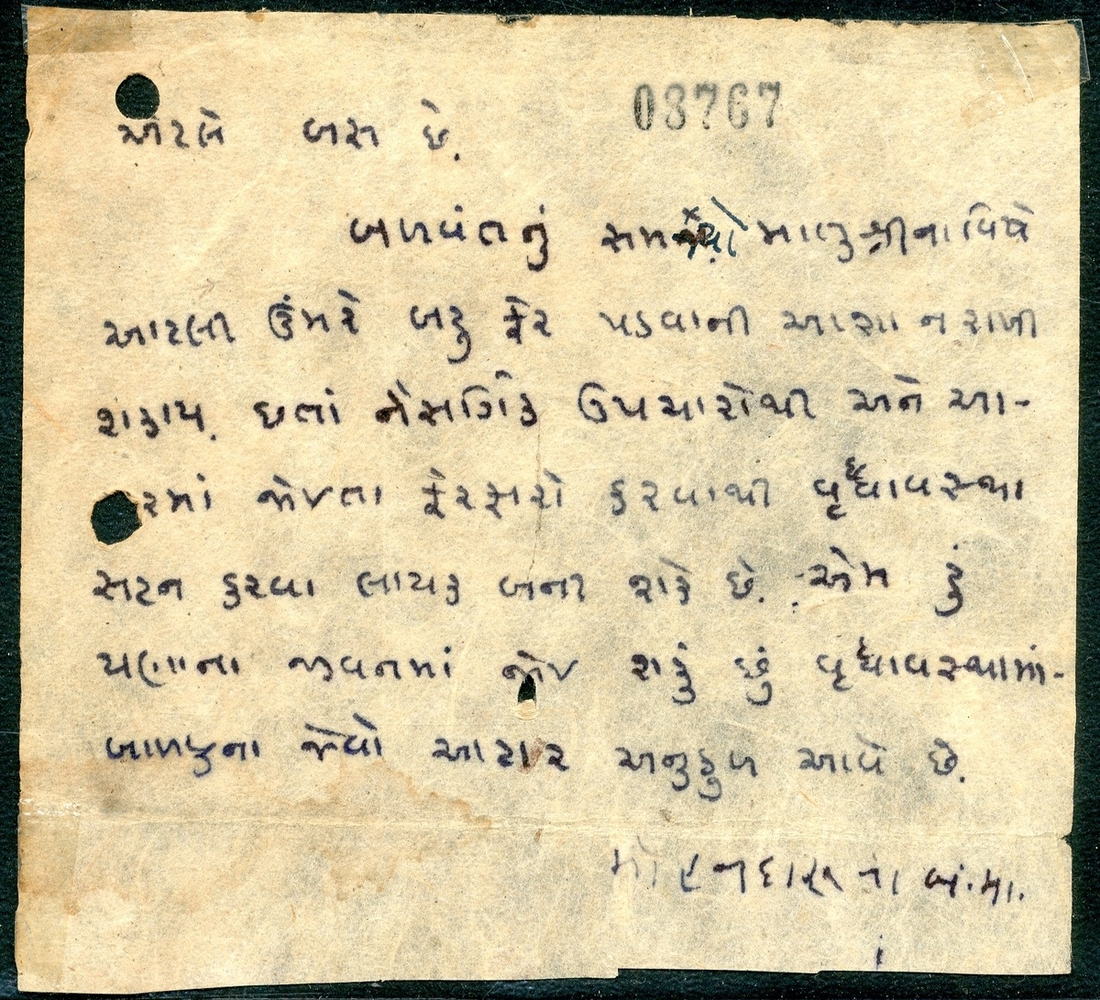 03767
એટલે બસ છે.
બળવંતનું સમજ્યો માતુશ્રીના વિષે
આટલી ઉંમરે બહુ ફેર પડવાની આશા ન રાખી
શકાય. છતાં નૈસર્ગિક ઉપચારોથી અને આ-
રમાં જોઇતા ફેરફારો કરવાથી વૃદ્ધાવસ્થા
સહન કરવા લાયક બની શકે છે. એમ હું
ઘણાના જીવનમાં જોઇ શકું છું વૃદ્ધાવસ્થામાં-
બાળકના જેવો આહાર અનુકુળ આવે છે.
મોહનદાસ ના વં.મા.